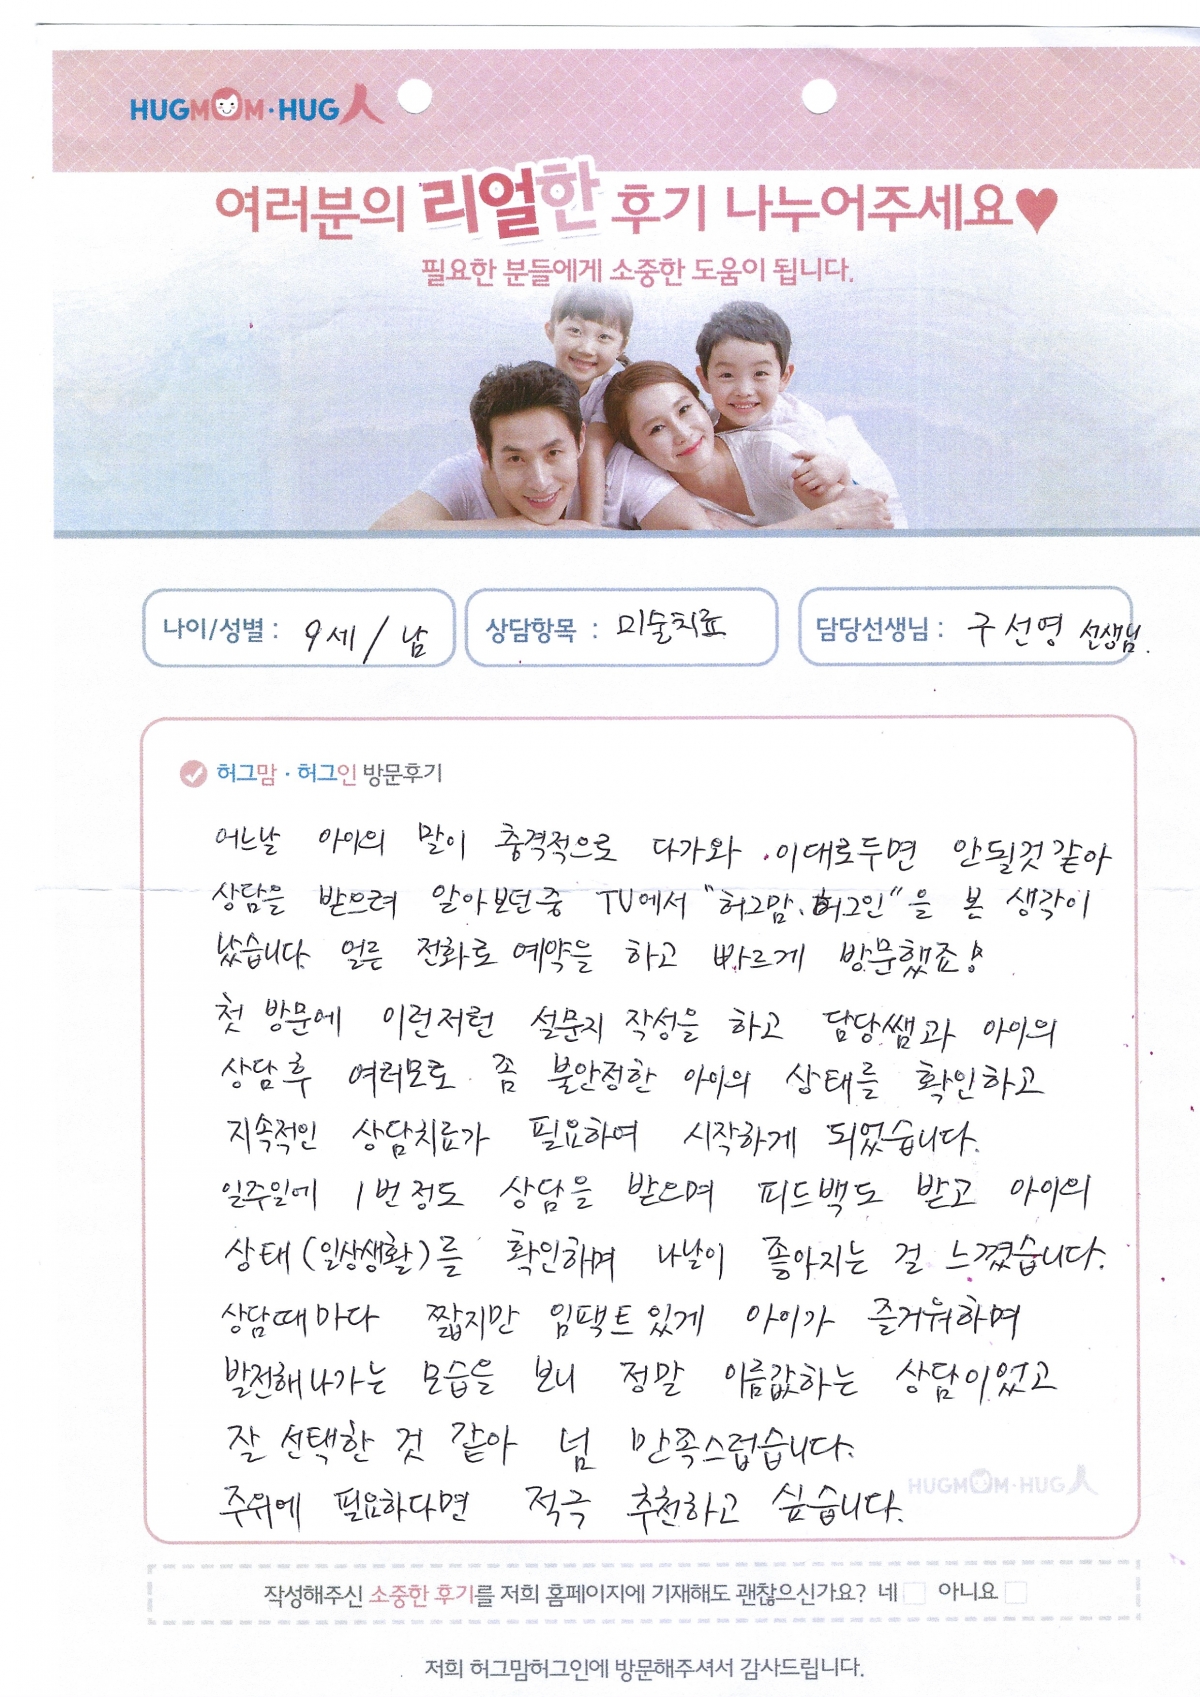 HUGMOM·HUG人
여러분의 리얼한 후기 나누어주세요♥
필요한 분들에게 소중한 도움이 됩니다.
나이/성별 : 9세 / 남
상담항목 : 미술치료
담당선생님 : 구선영 선생님.
허그맘·허그인 방문후기
어느날 아이의 말이 충격적으로 다가와 . 이대로두면 안될것 같아
상담을 받으려 알아보던중 TU에서 "허그맘, 허그인"을 본 생각이
났습니다. 얼른 전화로 예약을 하고 빠르게 방문했죠!
첫 방문에 이런저런 설문지 작성을 하고 담당쌤과 아이의
상담후 여러모로 좀 불안정한 아이의 상태를 확인하고
지속적인 상담치료가 필요하여 시작하게 되었습니다.
일주일에 1번정도 상담을 받으며 피드백도 받고 아이의
상태(일상생활)를 확인하며 나날이 좋아지는 걸 느꼈습니다.
상담때마다 짧지만 임팩트있게 아이가 즐거워하며
발전해나가는 모습을 보니 정말 이름값하는 상담이었고
잘 선택한 것 같아 넘 만족스럽습니다.
주위에 필요하다면 적극 추천하고 싶습니다.
HUGMOM·HUG人
작성해주신 소중한 후기를 저희 홈페이지에 기재해도 괜찮으신가요? 네 아니요
저희 허그맘허그인에 방문해주셔서 감사드립니다.